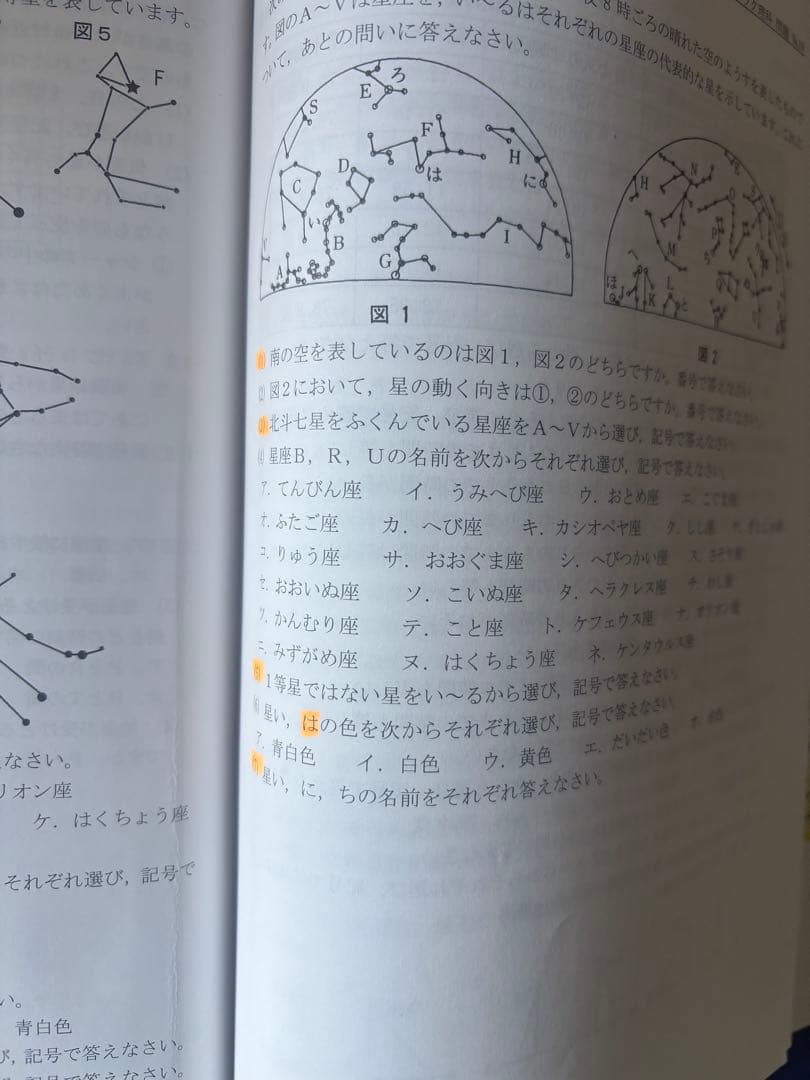 等星を表しています。
図5
F
えなさい。
リオン座
ケ．はくちょう座
それぞれ選び，記号で
い。
青白色
び，記号で答えなさい。
び，記号で答えなさい。
8時ごろの晴れた空のようすを表したもので
す。図のA〜Vは星座を，い〜るはそれぞれの星座の代表的な星を示しています。これに
ついて，あとの問いに答えなさい。
ろ
E
S
F
は
H
に
D
C
い
B
A
G
I
V
図1
H
N
M
ほ
へ
J
K
L
と
図2
(1) 南の空を表しているのは図1，図2のどちらですか。番号で答えなさい。
(2) 図2において，星の動く向きは①，②のどちらですか。番号で答えなさい。
(3) 北斗七星をふくんでいる星座をA〜Vから選び，記号で答えなさい。
(4) 星座B，R，Uの名前を次からそれぞれ選び，記号で答えなさい。
ア．てんびん座　イ．うみへび座　ウ．おとめ座　エ．こぐま座
オ．ふたご座　カ．へび座　キ．カシオペヤ座　ク．しし座
コ．りゅう座　サ．おおぐま座　シ．へびつかい座　ス．さそり座
セ．おおいぬ座　ソ．こいぬ座　タ．ヘラクレス座　チ．わし座
ツ．かんむり座　テ．こと座　ト．ケフェウス座　ナ．オリオン座
ニ．みずがめ座　ヌ．はくちょう座　ネ．ケンタウルス座
(5) 1等星ではない星をい〜るから選び，記号で答えなさい。
(6) 星い，はの色を次からそれぞれ選び，記号で答えなさい。
ア．青白色　イ．白色　ウ．黄色　エ．だいだい色　オ．赤色
(7) 星い，に，ちの名前をそれぞれ答えなさい。